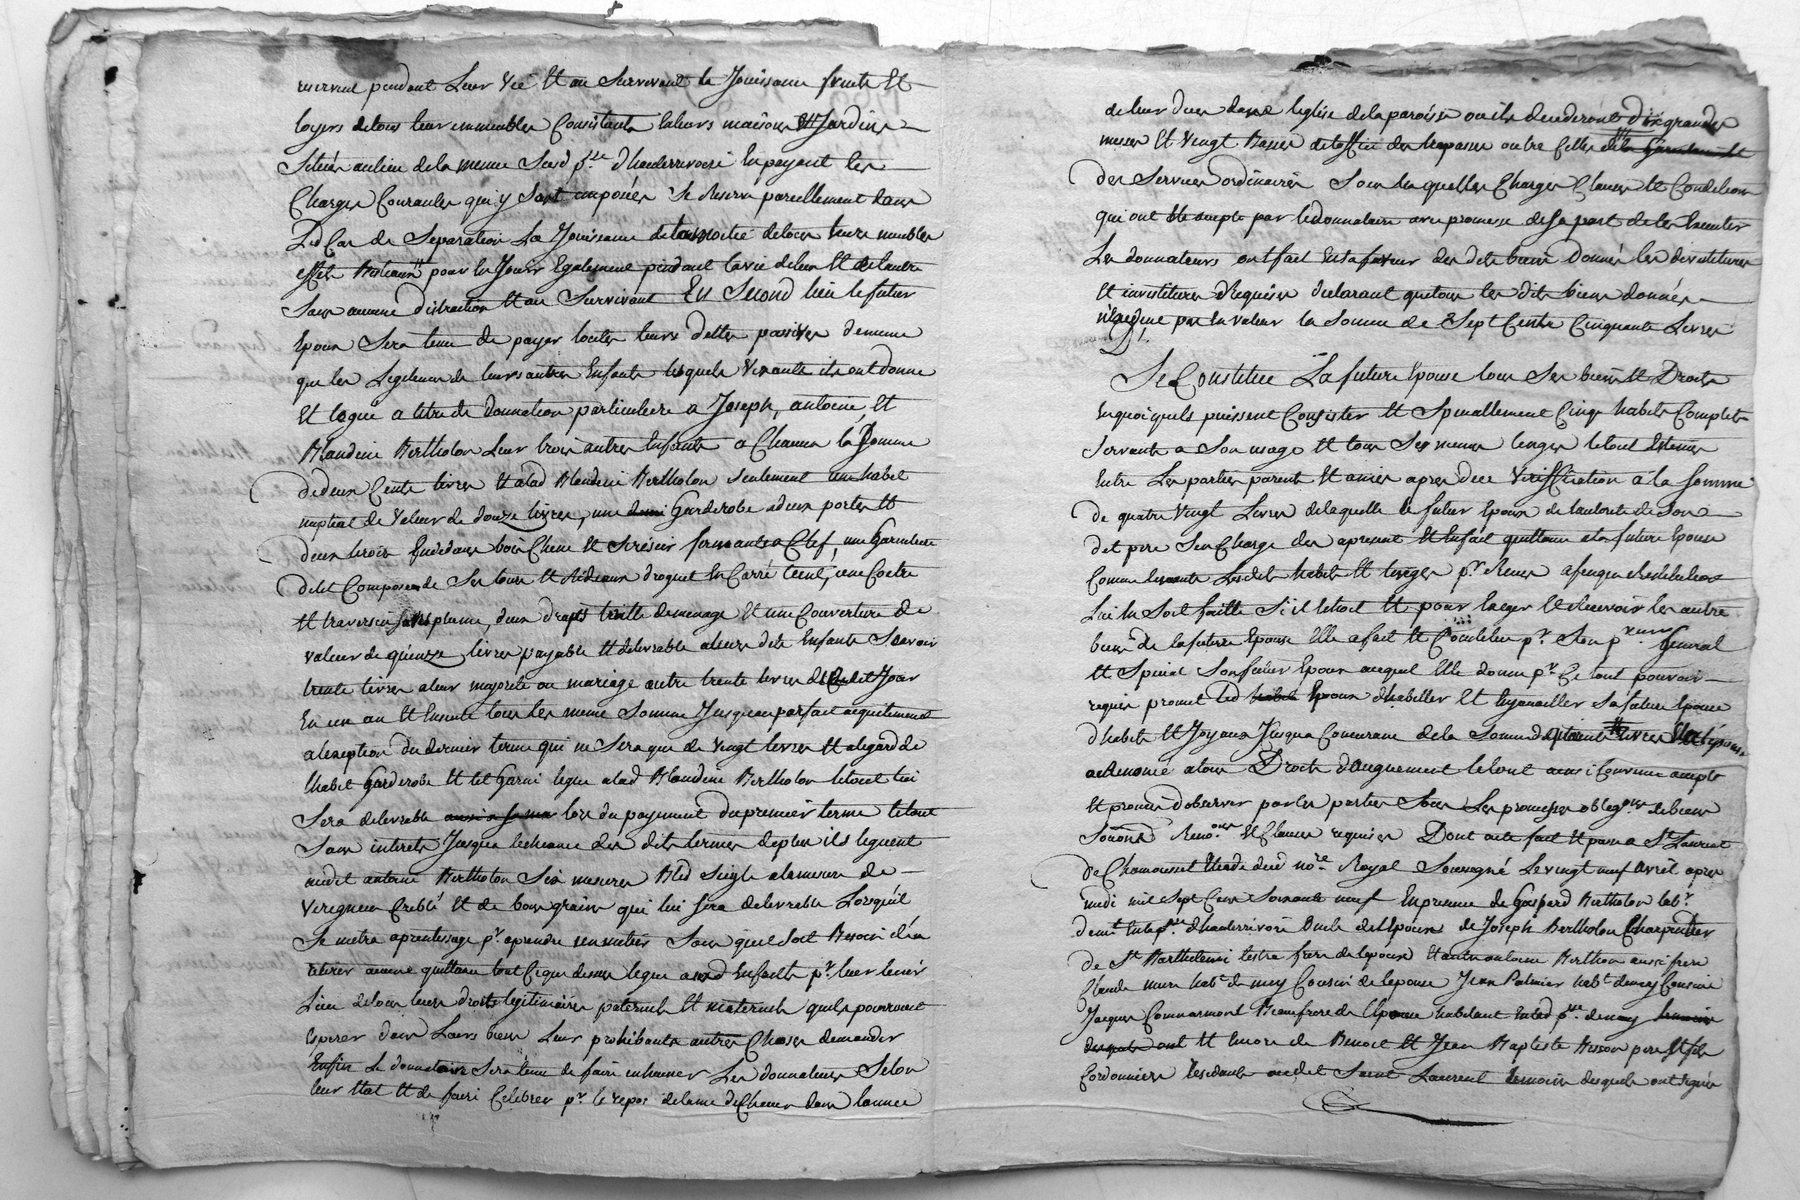 reservent pendant Leur Vie Et au Survivant la Jouissance fruits Et
loyers de tous leur immeubles Consistants En leurs maisons Et Jardins
Situés au lieu de la meme Susd p.sse d'haute rivoire En payant les
Charges Courantes qui y Sont imposées Se reserve pareillement dans
Led Cas de Separation La Jouissance de la moitié de tous leurs meubles
effets Bestiaux pour En Jouir Egalement pendant la vie de lun Et de lautre
Sans aucune distraction Et au Survivant En Second lieu le futur
Epoux Sera tenu de payer toutes leurs dettes passives de meme
que les Legitimes de leurs autres Enfants lesquels Venants ils ont donné
Et legué a titre de donnation particuliere a Joseph, antoine, Et
Blandine Bertholon Leur trois autres Enfants a Chacun la Somme
de deux Cents livres Et a lad Blandine Bertholon seulement un habit
nuptial de Valeur de douze livres, une Garderobe a deux portes Et
deux tiroirs En dedans bois Chene Et Serisier fermante a Clef, une Garniture
de lit Composée de Son tour Et Rideaux droguet En Carré teint, une Coetre
Et traversin plume, deux draps toille de menage Et une Couverture de
valeur de quinze livres payable Et delivrable a leurs dits Enfants Scavoir
trente livres a leur majorité ou mariage autre trente livres dudit Jour
En un an Et Ensuite tous les meme Somme Jusqu'au parfait aquitement
a lexception du dernier terme qui ne Sera que de Vingt livres Et a legard de
lhabit Garderobe Et lit Garni legué a lad Blandine Bertholon le tout lui
Sera delivrable lors du payement du premier terme le tout
Sans interets Jusqu'a lecheance des dits termes de plus ils leguent
audit antoine Bertholon Six mesures Bled Seigle a la mesure de
Verigneu Criblé Et de bon grains qui lui Sera delivrable Lorsqu'il
Se metra aprentissage p.r aprendre un metier Sans quil Soit Besoin d'en
retirer aucune quittance tout Ce que dessus legué auxd Enfants p.r leur tenir
Lieu de tous leurs droits legitimaires paternels Et maternels quils pourroient
Esperer dans Leurs biens Leur prohibants autres Choses demander
Enfin Le donnataire Sera tenu de faire inhumer Les donnateurs Selon
leur Etat Et de faire Celebrer p.r le repos de lame de Chacun dans lannée
de leur deces dans leglise de la paroisse ou ils decederont dix grandes
messes Et Vingt Basses de loffice des trepassés outre Celles
des Services ordinaires Sous lesquelles Charges Clauses Et Conditions
qui ont Eté accepté par le donnataire avec promesse de Sa part de les Executer
Les donnateurs ont fait En Sa faveur des dits biens donnés les devestitures
Et investitures Requises declarant que tous les dits biens donnés
n'Exedent pas En valeur la Somme de Sept Cents Cinquante Livres
Se Constitue La future Epouse tous Ses biens Et Droits
En quoi quils puissent Consister Et Specialement Cinq habits Complets
Servants a Son usage Et tous Ses menus linges le tout Estimé
Entre Les parties parents Et amies apres deue Veriffication a la Somme
de quatre Vingt Livres de laquelle le futur Epoux de lautorité de Son
dit pere Sen Charge des apresent Et En fait quittance a la future Epouse
Comme Ses dits habits Et linges p.r Reçus afin que restitution
Lui En Soit faitte Si il Echoit Et pour Exiger Et Recevoir les autre
biens de la future Epouse Elle a fait Et Constitué p.r Son p.reur General
Et Special Son futur Epoux auquel Elle donne p.r Ce tout pouvoir
requis promet led Epoux d'habiller Et Enjouailler Sa future Epouse
d'habits Et Joyaux Jusqu'a Concurance de la Somme de trente livres
a Renoncé a tous Droits d'augment le tout ainsi Convenu accepté
Et promis d'observer par les parties Sous Les promesses obligons de biens
Soumons Renons Et Clauses requises Dont acte fait Et passé a St Laurent
de Chamousset Etude dud no.re Royal Soussigné Le vingt neuf Avril apres
midi mil Sept Cent Soixante neuf En presence de Gaspard Bertholon lab.r
dem.t En la p.sse d'haute rivoire Oncle de lEpoux de Joseph Bertholon Charpentier
de St Barthelemi lestra frere de lepoux Et autre antoine Berthon aussi frere
Claude mure hab.t de mey Cousin de lepouse Jean Palmier hab.t de mey Cousin
Jacques Commarmond Beaufrere de lEpouse habitant En lad p.sse de mey
Et Encore de Benoit Et Jean Baptiste Besson pere Et fils
Cordonniers residants audit Saint Laurent temoins desquels ont Signés